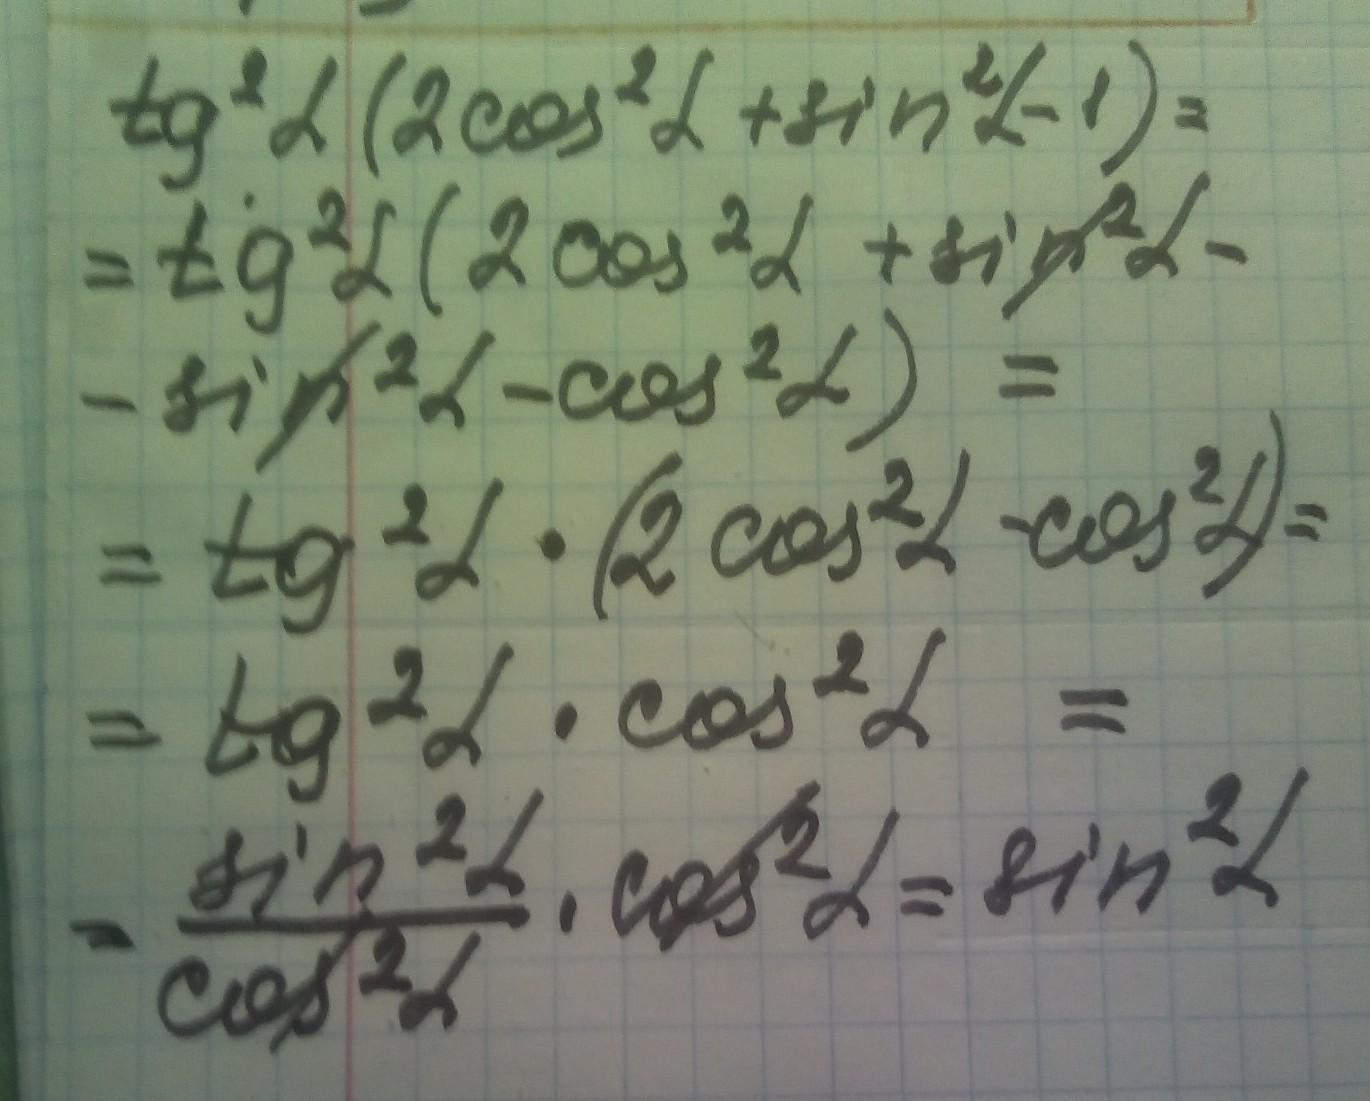 tg²α(2cos²α+sin²α-1)=
=tg²α(2cos²α+sin²α-
-sin²α-cos²α)=
=tg²α·(2cos²α-cos²α)=
=tg²α·cos²α=
=sin²α/cos²α·cos²α=sin²α